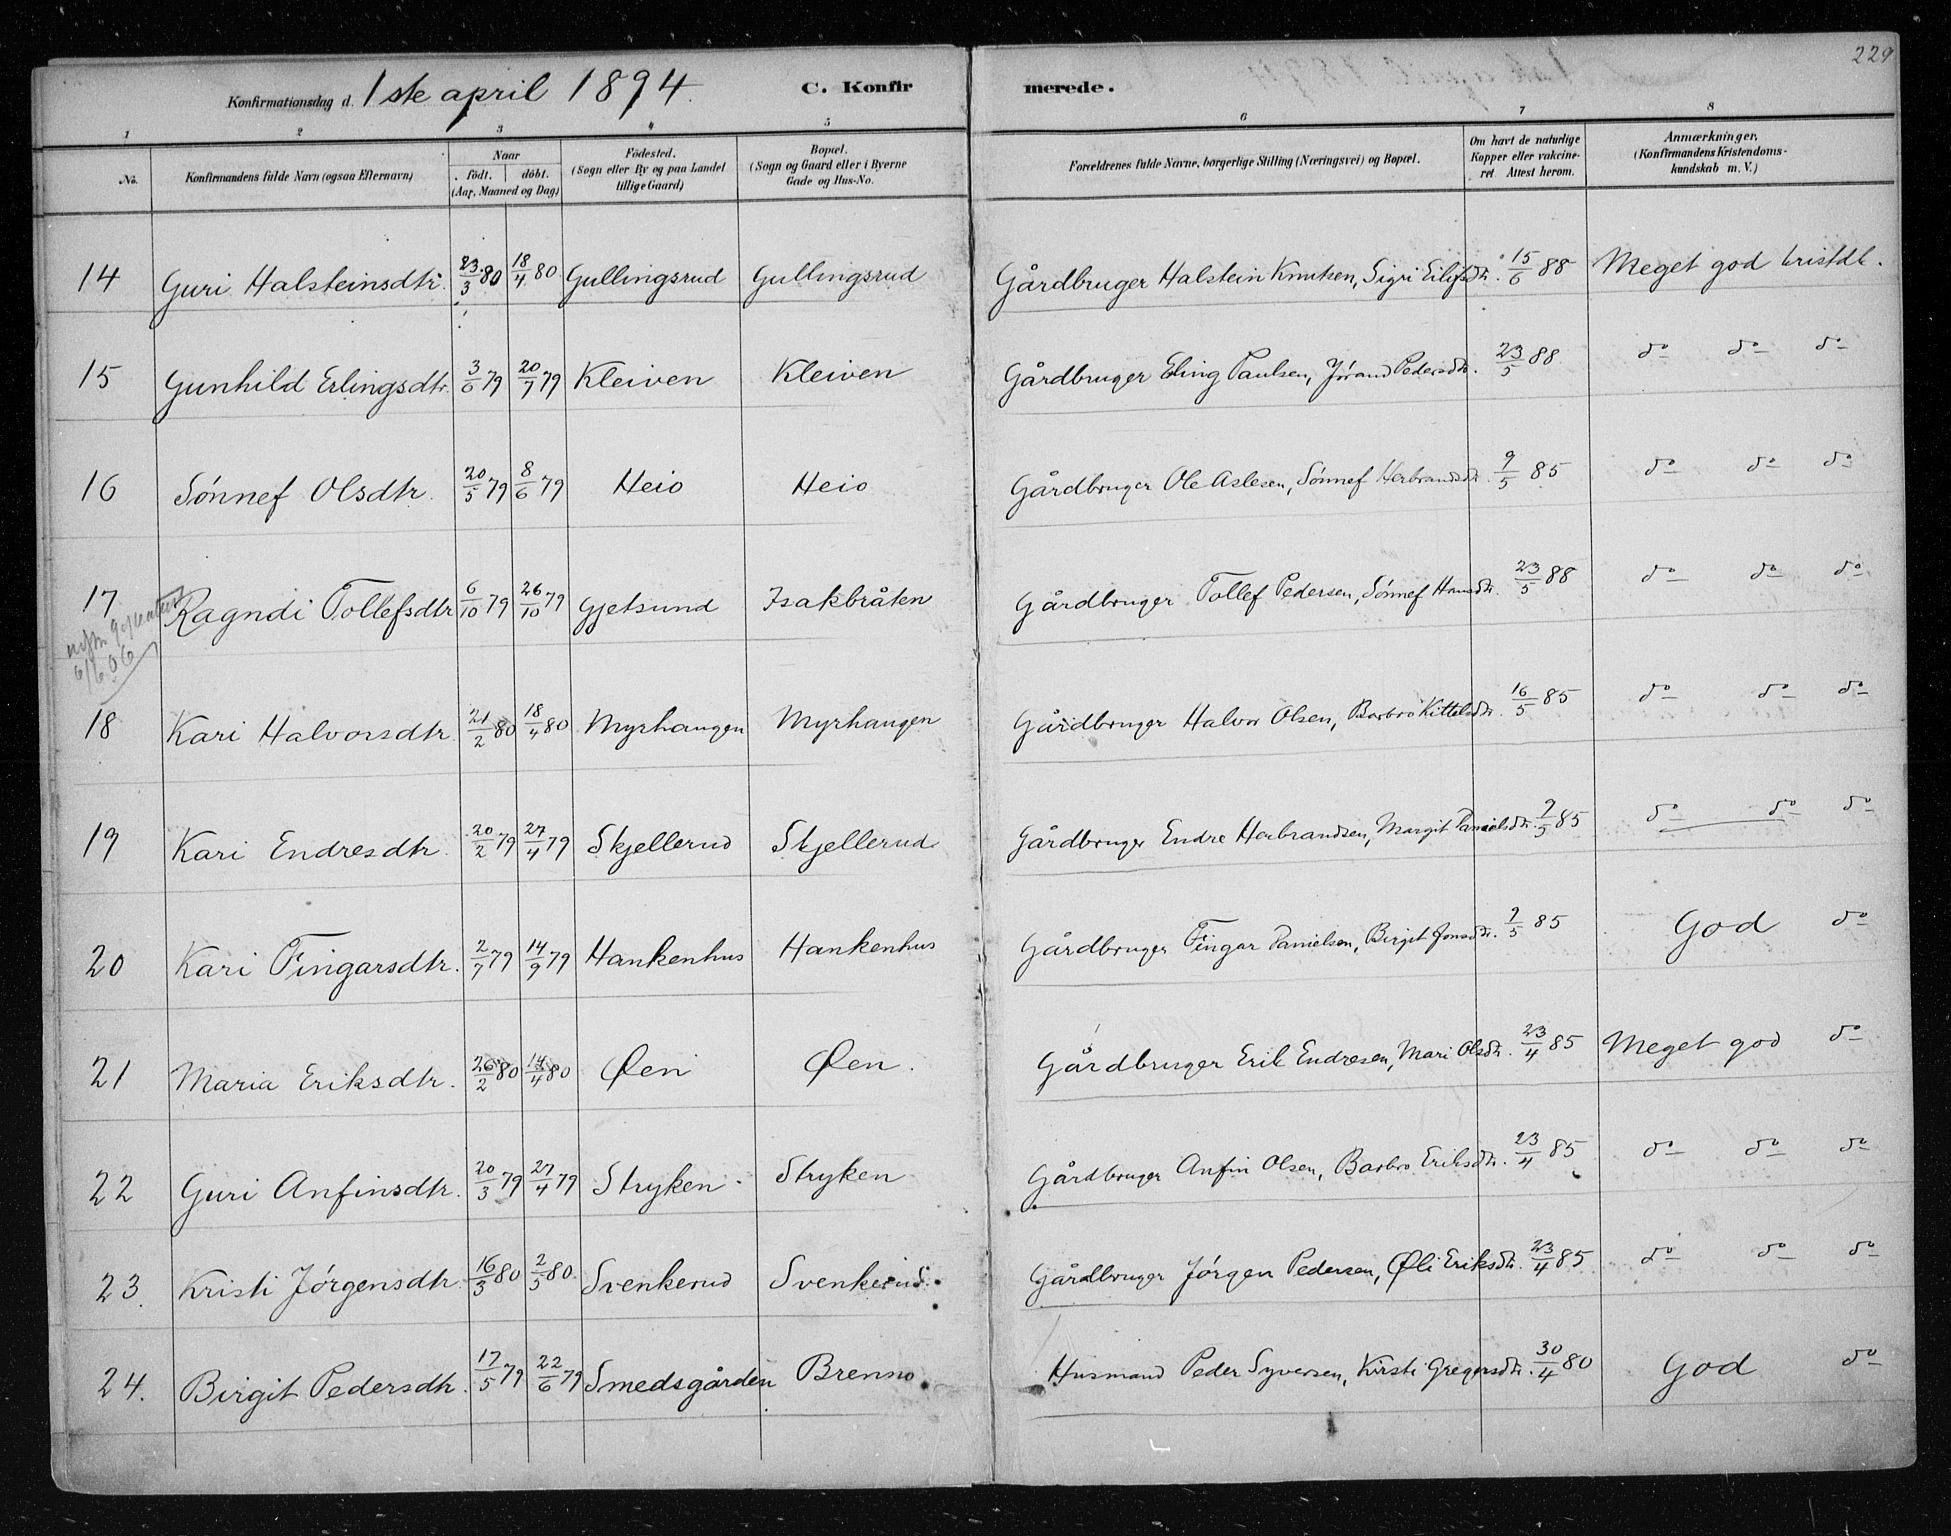 229
Konfirmationsdag d. 1ste april 1894. C. Konfirmerede.
1 2 3 4 5 6 7 8
No. Konfirmandens fulde Navn (ogsaa Efternavn) Naar födt. döbt. (Aar, Maaned og Dag) Födested. (Sogn eller By og paa Landet tillige Gaard) Bopæl. (Sogn og Gaard eller i Byerne Gade og Hus-No. Forældrenes fulde Navne, borgerlige Stilling (Næringsvei) og Bopæl. Om havt de naturlige Kopper eller vakcineret Attest herom. Anmærkninger. (Konfirmandens Kristendomskundskab m. V.)
14 Guri Halsteinsdtr. 23/3 80 18/4 80 Gullingsrud Gullingsrud Gårdbruger Halstein Knutsen, Sigri Eilefsdtr. 15/6 88 Meget god kristdk.
15 Gunhild Erlingsdtr. 3/6 79 20/7 79 Kleiven Kleiven Gårdbruger Eling Paulsen, Jørand Pedersdtr. 23/5 88 do do do
16 Sønnef Olsdtr. 20/5 79 8/6 79 Heio Heio Gårdbruger Ole Aslesen, Sønnef Herbrandsdtr. 9/5 85 do do do
17 Ragndi Tollefsdtr 6/10 79 26/10 79 Gjetsund Isakbråten Gårdbruger Tollef Pedersen, Sønnef Hansdtr. 23/5 88 do do do
6/6 06
18 Kari Halvorsdtr. 21/2 80 18/4 80 Myrhaugen Myrhaugen Gårdbruger Halvor Olsen, Barbro Kittelsdtr. 16/5 85 do do do
19 Kari Endresdtr. 20/2 79 27/4 79 Skjellerud Skjellerud Gårdbruger Endre Herbrandsen, Margit Danielsdtr. 9/5 85 do do do
20 Kari Fingarsdtr. 2/7 79 14/9 79 Hankenhus Hankenhus Gårdbruger Fingar Danielsen, Birgit Jonsdtr. 9/5 85 God do
21 Maria Eriksdtr. 26/2 80 14/4 80 Øen Øen. Gårdbruger Erik Endresen, Mari Olsdtr. 23/4 85 Meget god do
22 Guri Anfinsdtr. 20/3 79 27/4 79 Stryken Stryken Gårdbruger Anfin Olsen, Barbro Eriksdtr. 23/4 85 do do do
23. Kristi Jørgensdtr. 16/3 80 2/5 80. Svenkerud Svenkerud. Gårdbruger Jørgen Pedersen, Øli Eriksdtr. 23/4 85 do do do
24. Birgit Pedersdtr. 17/5 79 22/6 79 Smedsgården Brenno Husmand Peder Syversen, Kirsti Gregersdtr. 30/4 80 God do